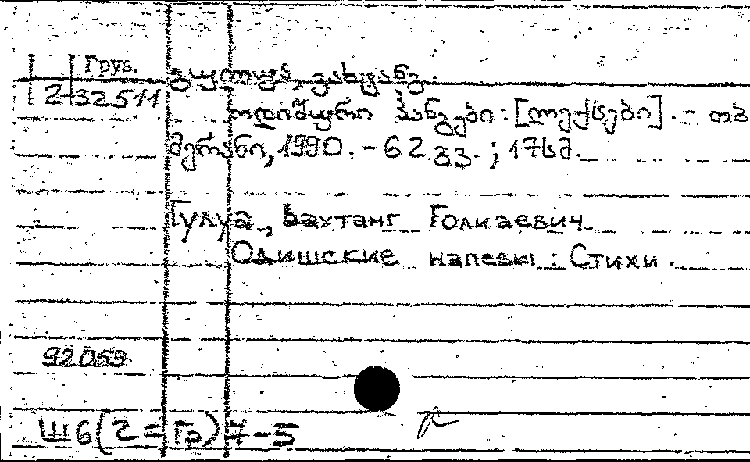 Груз.
2-32511
გულუა, ვახტანგ.
ოდიშური ჰანგები : [ლექსები]. - თბ
მერანი, 1990. - 62 გვ. ; 17სმ.
Гулуа, Вахтанг Голкаевич
Одишские напевы : Стихи.
92059
Ш6(2=Гр)7-5